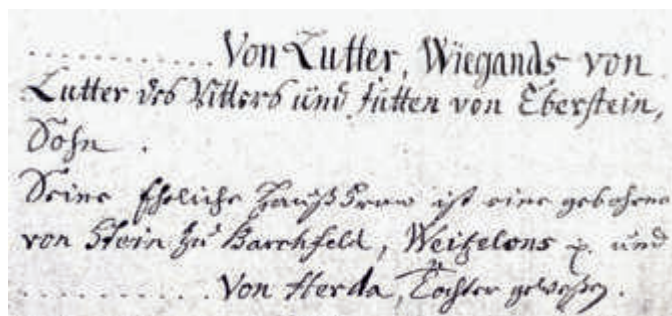 ........... Von Lutter, Wiegands von
Lutter des Ritters und Jutten von Eberstein,
Sohn.
Seine Eheliche Hauß Fraw ist eine gebohrne
von Stein zu Barchfeld, Weitzelons p. und
........... Von Herda, Tochter geweßen.